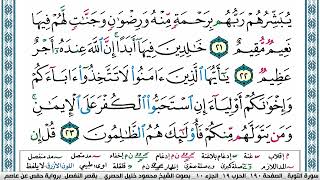 يُبَشِّرُهُمْ رَبُّهُم بِرَحْمَةٍ مِّنْهُ وَرِضْوَٰنٍ وَجَنَّٰتٍ لَّهُمْ فِيهَا
نَعِيمٌ مُّقِيمٌ ٢١ خَٰلِدِينَ فِيهَآ أَبَدًا إِنَّ ٱللَّهَ عِندَهُۥٓ أَجْرٌ
عَظِيمٌ ٢٢ يَٰٓأَيُّهَا ٱلَّذِينَ ءَامَنُوا۟ لَا تَتَّخِذُوٓا۟ ءَابَآءَكُمْ
وَإِخْوَٰنَكُمْ أَوْلِيَآءَ إِنِ ٱسْتَحَبُّوا۟ ٱلْكُفْرَ عَلَى ٱلْإِيمَٰنِ
وَمَن يَتَوَلَّهُم مِّنكُمْ فَأُو۟لَٰٓئِكَ هُمُ ٱلظَّٰلِمُونَ ٢٣ قُلْ إِن
سورة التوبة - الصفحة ١٩٠ - الحزب ١٩ - الجزء ١٠ - بصوت الشيخ محمود خليل الحصري - بقصر المنفصل برواية حفص عن عاصم